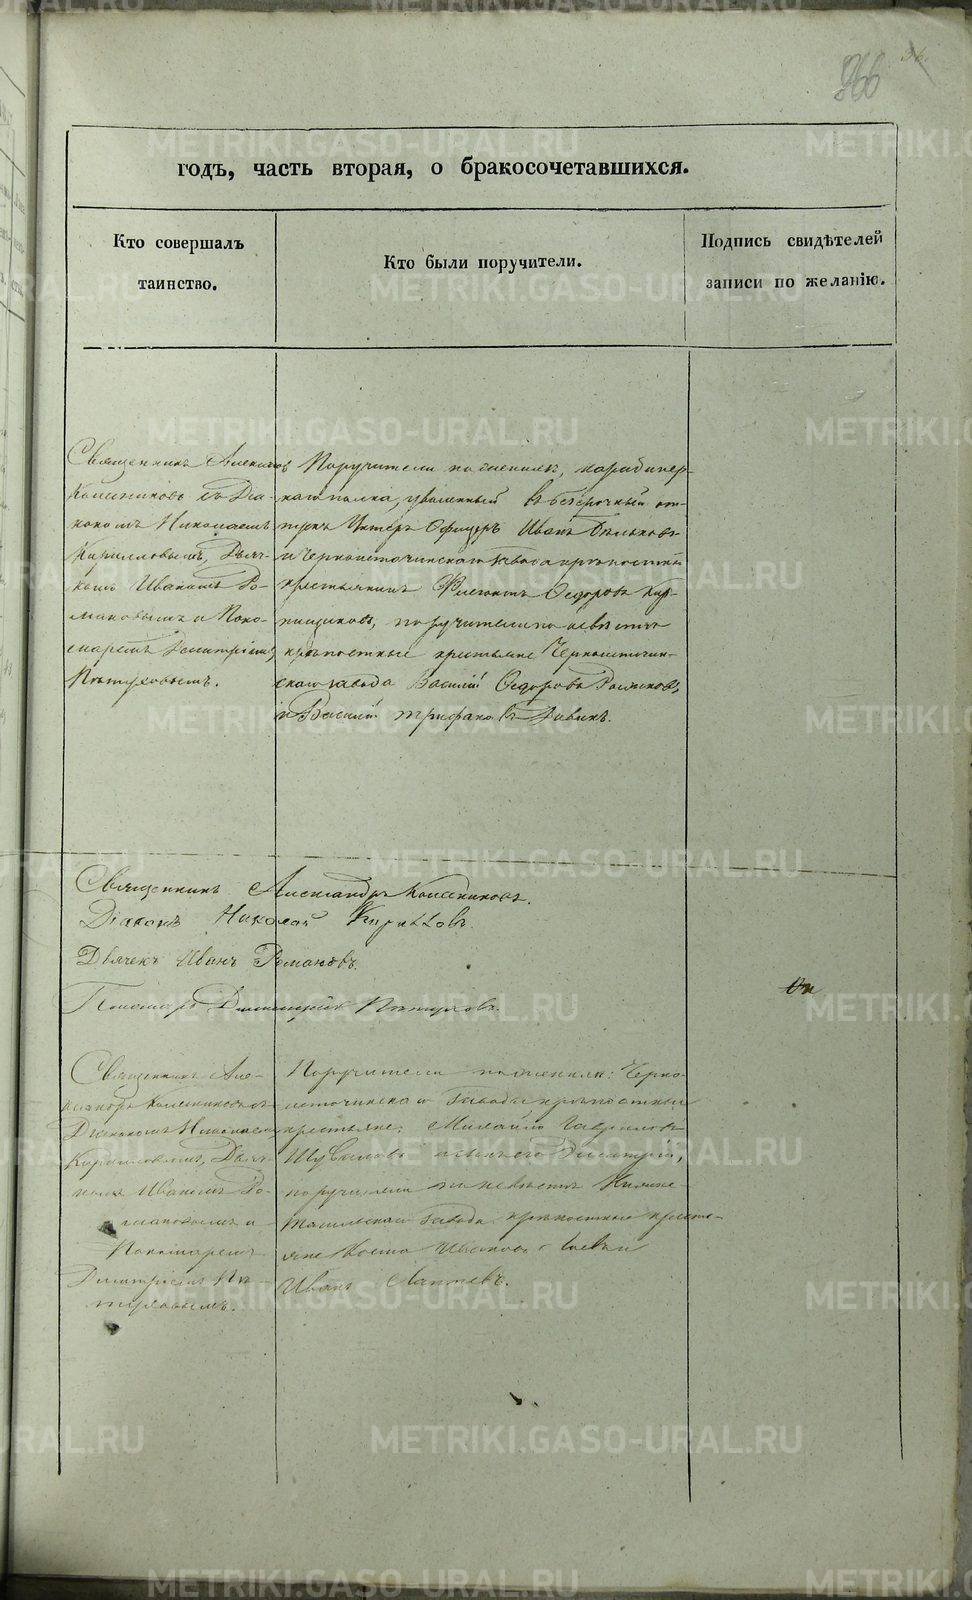 366
36.
годъ, часть вторая, о бракосочетавшихся.
Кто совершалъ
таинство.
Кто были поручители.
Подпись свидѣтелей
записи по желанію.
Священникъ
Колесниковъ съ Діа-
кономъ Николаемъ
Кирилловымъ, Дьяч-
комъ Иваномъ Ро-
мановымъ и Поно-
маремъ Димитріемъ
Пѣтуховымъ.
Поручители по женихѣ, карабинер-
наго полка, уволенный въ безсрочный от-
пускъ Унтеръ Офицеръ Иванъ
и Черноисточинскаго завода крѣпостный
крестьянинъ Ѳедоровъ Кир-
пищиковъ, поручители по невѣстѣ
крѣпостные крестьяне Черноисточин-
скаго завода Василій Ѳедоровъ
и Василій
Священникъ Александръ Колесниковъ.
Діаконъ Николай Кирилловъ.
Дьячекъ Иванъ Романовъ.
Пономарь Димитрій Пѣтуховъ.
Священникъ Але-
ксандръ Колесниковъ съ
Діакономъ Николаемъ
Кирилловымъ, Дьяч-
комъ Иваномъ Ро-
мановымъ и
Пономаремъ
Димитріемъ Пѣ-
туховымъ.
Поручители по женихѣ: Черно-
источинскаго Завода крѣпостные
крестьяне: Михайло Гавриловъ
Шуваловъ Димитрій,
поручители по невѣстѣ Нижне-
Тагильскаго Завода крѣпостные кресть-
яне Ивановъ
Иванъ Лаптевъ.
METRIKI.GASO-URAL.RU